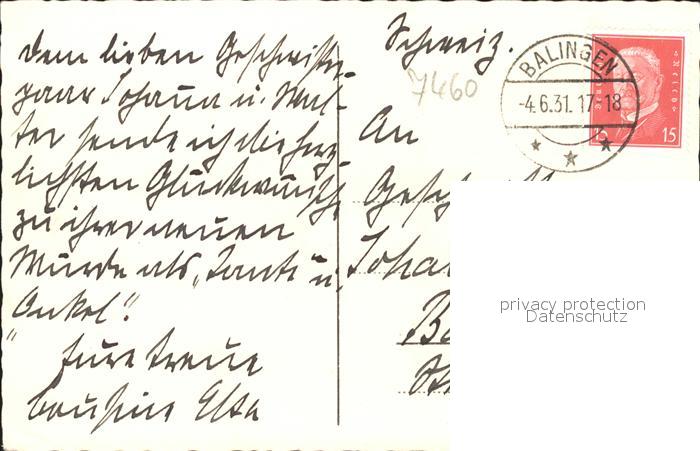 Dem lieben Geschwister-
paar Johanna u. Wal-
ter sende ich die herz-
lichsten Glückwünsche
zu ihrer neuen
Würde als „Tante u.
Onkel“.
Eure treue
Cousine Elsa
Schweiz.
7460
An
Gesch
Joha
BALINGEN
-4.6.31.17-18
15
privacy protection
Datenschutz